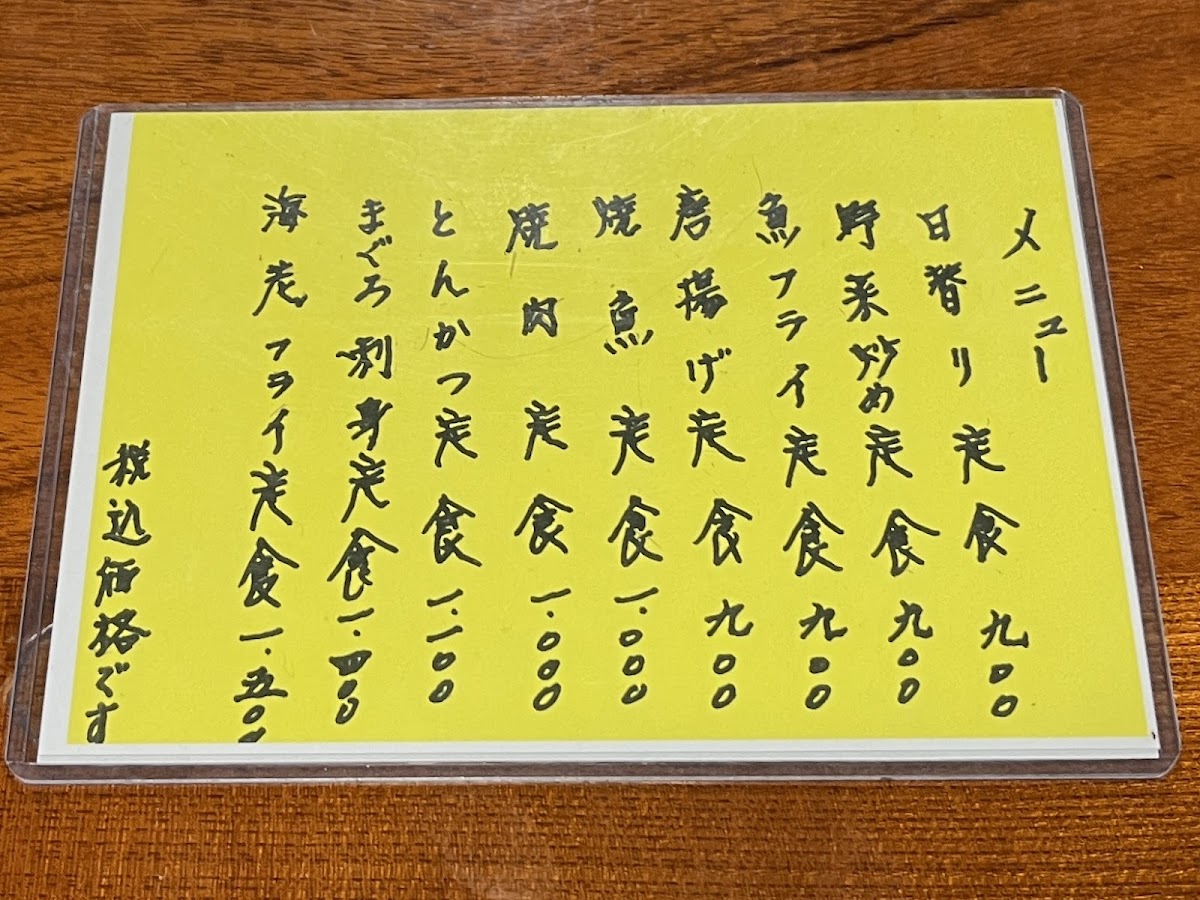 メニュー
日替り定食 九〇〇
野菜炒め定食 九〇〇
魚フライ定食 九〇〇
唐揚げ定食 九〇〇
焼魚定食 一.〇〇〇
焼肉定食 一.〇〇〇
とんかつ定食 一.一〇〇
まぐろ刺身定食 一.四〇〇
海老フライ定食 一.五〇〇
税込価格です